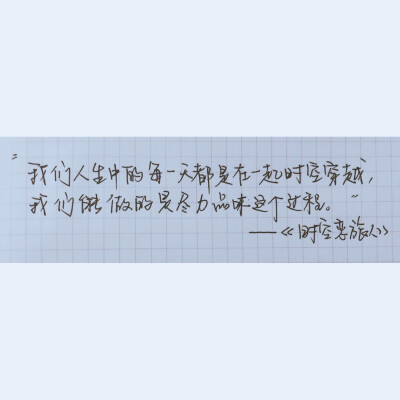 “我们人生中的每一天都是在一起时空穿越，
我们能做的是尽力品味这个过程。”
——《时空恋旅人》